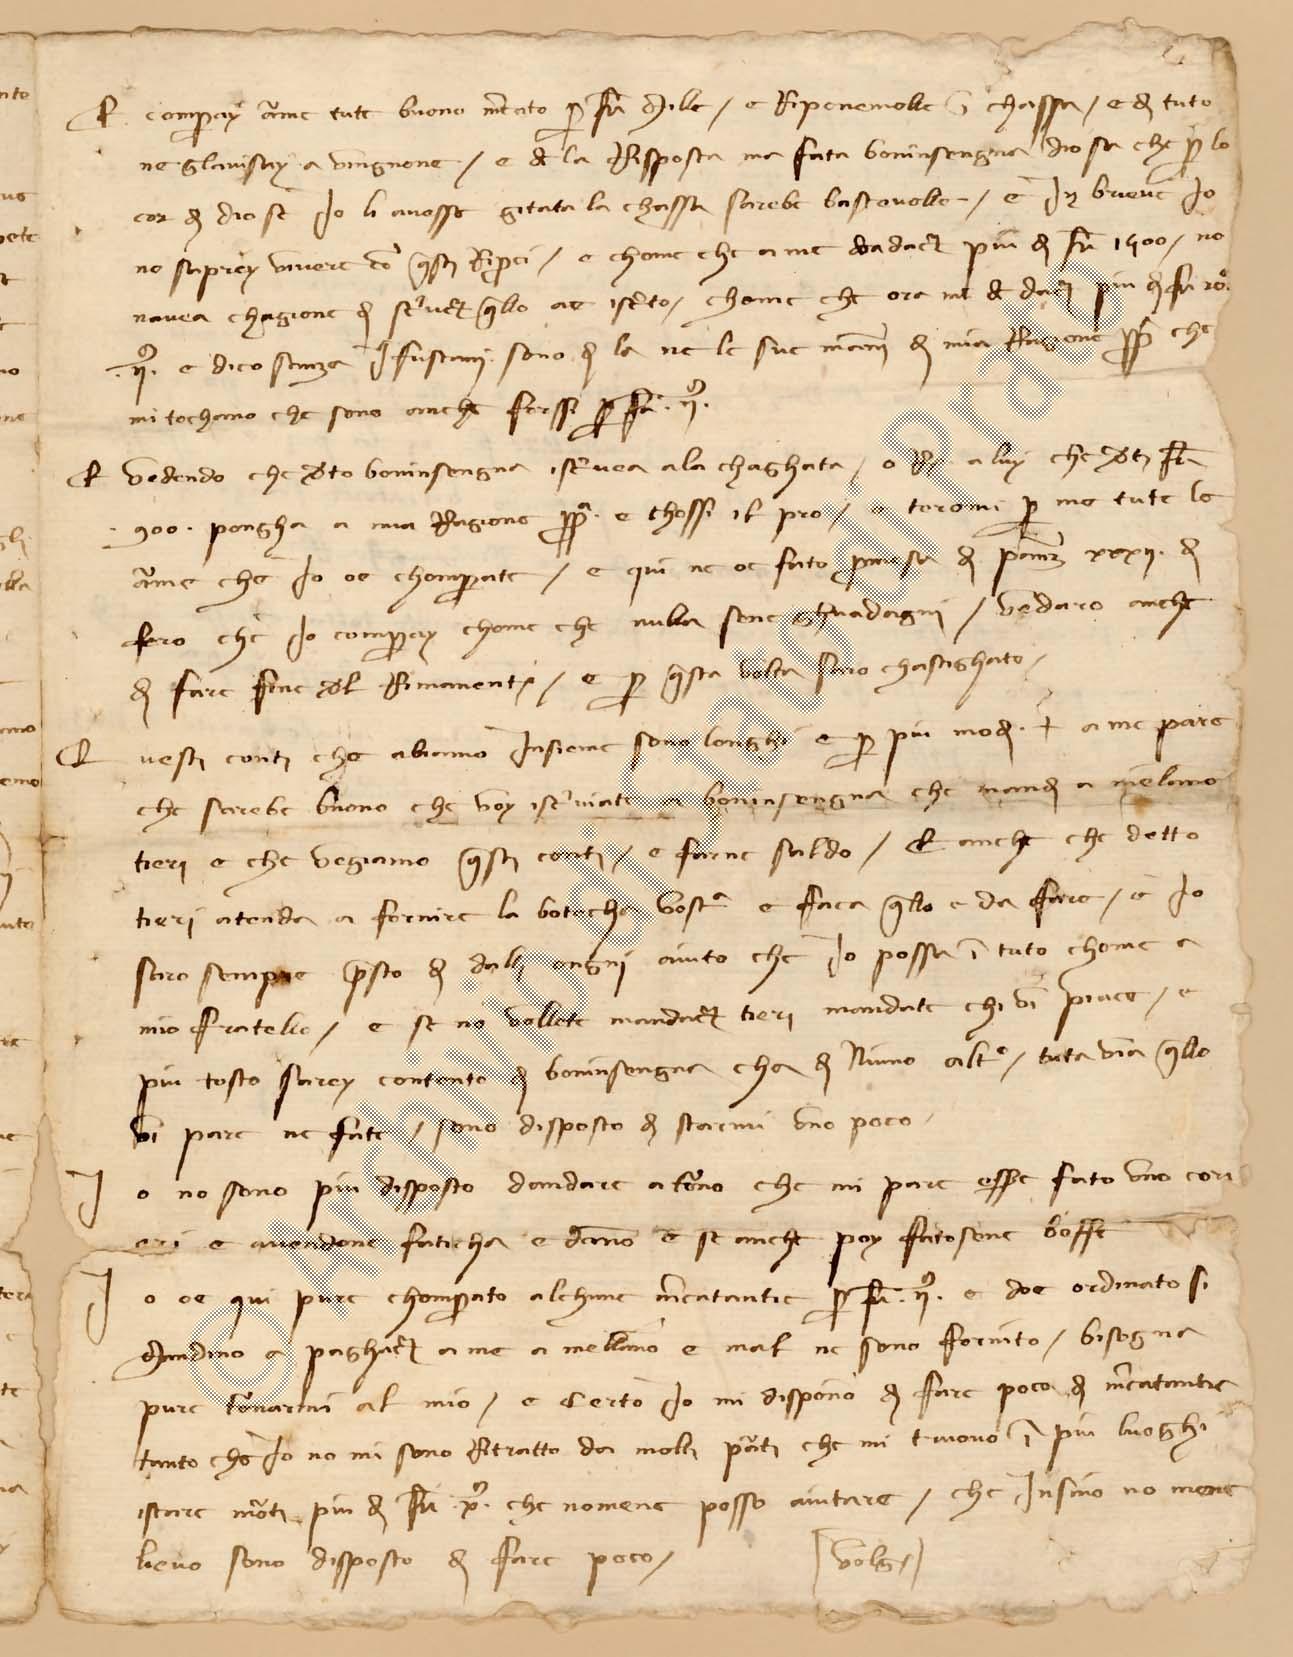 E compray arme tute buono merchato per fior. mille / e Ripenemolle in chassa / e di tuto
ne gl avisay a vingnone / e de la Risposta m a fata boninsengna dio sa che per lo
cor di dio se Io li avesse gitata la chassa sarebe bastevolle / e In brieve Io
no saprey vivere con questi / e chome che a me d a dare più di fior. 1500 / no
n avea chagione di scriver quello ae iscrito / chome che ora me de dare più di fior.
e dico senza I fustani sono di la ne le sue mani di mia Ragione propia che
mi tochano che sono anche forssi per fior.
E vedendo che deto boninsengna iscrivea a la chaghata / o a luy che deti fior.
900 pongha a mia Ragione propia e thossi il pro / e teromi per me tute le
arme che Io oe chomprate / e qui ne oe fato promessa di di
fero che Io compray chome che nulla se ne ghuadagni / vedaro anche
di fare fine del Rimanente / e per questa volta saro chastighato /
E questi conti che abiamo Insieme sono longhi e per più modi a me pare
che sarebe buono che voy iscriviate a boninsengna che mandi a melano
tieri e che vegiamo questi conti / e farne saldo / E anche che detto
tieri atenda a fornire la botecha vostra e faca quello e da fare / e Io
saro sempre presto di dalli ongni aiuto che Io possa in tuto chome a
mio fratello / e se no vollete mandare tieri mandate chi vi piace / e
più tosto sarey contento di boninsengna cha di Niuno altro / tuta via quello
vi pare ne fate / sono disposto di starmi uno poco
Io no sono più disposto d andare atorno che mi pare esser fato uno cori
eri e avendone faticha e dano e se anche poy fatosene beffe
Io oe qui pure chomprato alchune merchatantie per fior. e doe ordinato si
mandino a paghare a me a mellano e mal ne sono fornito / bisogna
pure tornarmi al mio / e certo Io mi dispono di fare poca di merchatantie
tanto che Io no mi sono Ritratto da molti parti che mi truovo in più luoghi
istare morti più di fior. che no me ne posso aiutare / che Insino no me ne
lievo sono disposto di fare poco / [volgi]